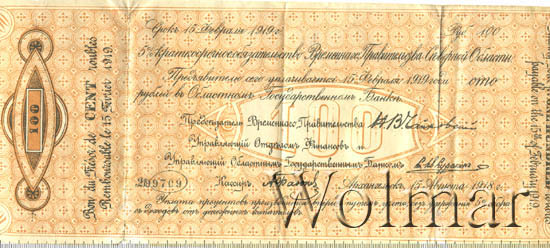 Срокъ 15 Февраля 1919 г. Руб. 100.
5% Краткосрочное обязательство Временнаго Правительства Сѣверной Области
Предъявителю сего уплачивается 15 Февраля 1919 года сто
рублей въ Областномъ Государственномъ Банкѣ.
Предсѣдатель Временнаго Правительства
Управляющій Отдѣломъ Финансовъ и
Управляющій Областнымъ Государственнымъ Банкомъ
299709 Кассиръ Архангельскъ, 15 Августа 1918 г.
100
Bon du Trésor de CENT roubles
Remboursable le 15 Février 1919.
payable on the 15 of February 1919
Wolmar